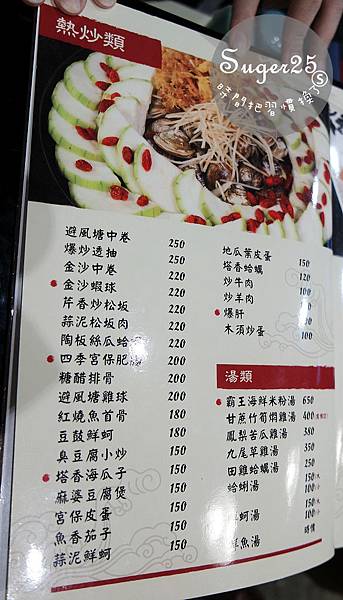 熱炒類
Suger25
時間把習慣換了
避風塘中卷 250
爆炒透抽 250
金沙中卷 220
金沙蝦球 220
芹香炒松坂 220
蒜泥松坂肉 220
陶板絲瓜蛤 220
四季宮保肥腸 200
糖醋排骨 200
避風塘雞球 200
紅燒魚首骨 180
豆鼓鮮蚵 180
臭豆腐小炒 150
塔香海瓜子 150
麻婆豆腐煲 150
宮保皮蛋 150
魚香茄子 150
蒜泥鮮蚵 150
地瓜葉皮蛋 150
塔香蛤蠣 120
炒牛肉 100
炒羊肉 100
爆肝 100
木須炒蛋 100
湯類
霸王海鮮米粉湯 650
甘蔗竹筍燜雞湯 400
鳳梨苦瓜雞湯 380
九尾草雞湯 350
田雞蛤蠣湯 250
蛤蜊湯 150小
100
蚵湯 150
100
鮮魚湯 時價